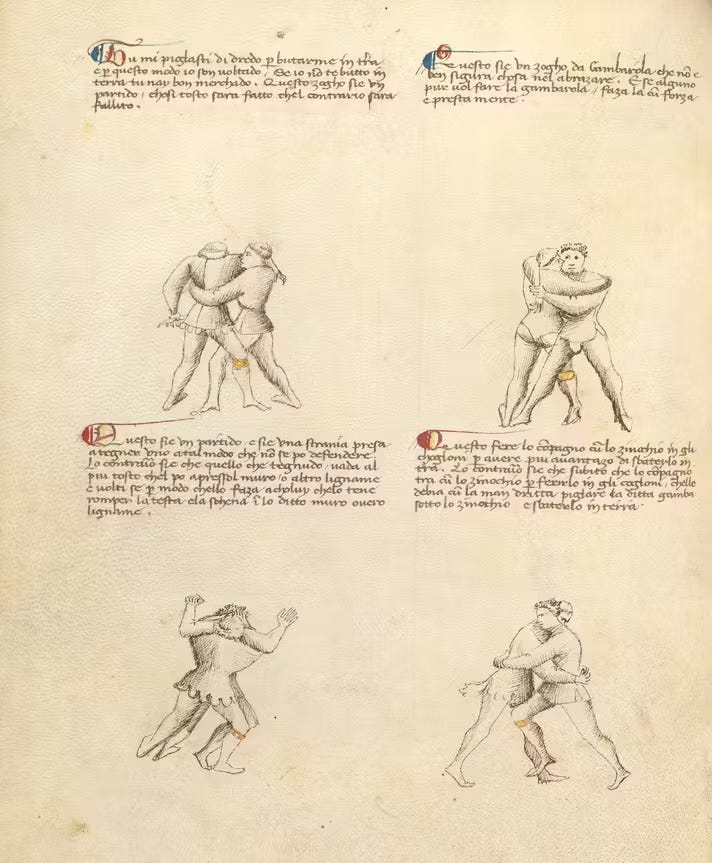 Tu mi piglasti di dredo p butarme in tr̃a
e p questo modo io son voltado. Se io nõ te butto in
terra tu nai bon merchado. Questo zogho sie vn
partido, chosi tosto sara fatto chel contrario sara
fallito.
Questo sie vn zogho, da Gambarola, che nõ e
ben sigura chosa nel abrazare. E se alguno
pur vol fare la gambarola, faza la cũ forza
e presta mente.
Questo sie vn partido, e sie vna strania presa
a tegner vno a tal modo che nõ se po defendere.
Lo contrario sie che quello che tegnudo, vada al
piu tosto chel po apresso l muro o altro ligname
e volti se p modo chello faza a choluy chelo tene
romper la testa e la schena ĩ lo ditto muro overo
ligname.
Questo fere lo cõpagno cũ lo zinochio in gli
choglioni p avere piu avantazo di sbaterlo in
tr̃a. Lo contrario sie che subito che lo cõpagno
tra cũ lo zinochio p ferirlo in gli coglioni, chello
debia cũ la man dritta piglare la ditta gamba
sotto lo zinochio e sbaterlo in terra.